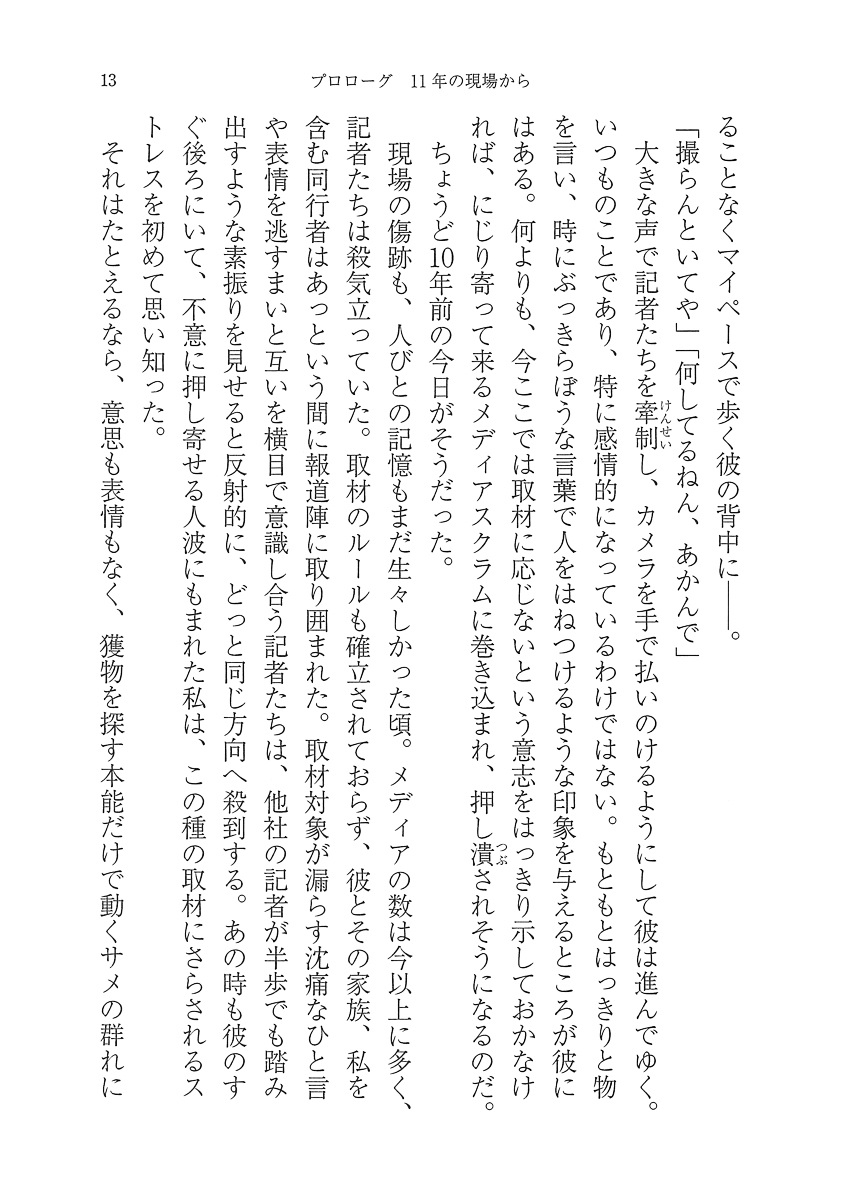 13
プロローグ　11年の現場から
ることなくマイペースで歩く彼の背中に――。
「撮らんといてや」「何してるねん、あかんで」
　大きな声で記者たちを牽制し、カメラを手で払いのけるようにして彼は進んでゆく。
けんせい
いつものことであり、特に感情的になっているわけではない。もともとはっきりと物
を言い、時にぶっきらぼうな言葉で人をはねつけるような印象を与えるところが彼に
はある。何よりも、今ここでは取材に応じないという意志をはっきり示しておかなけ
れば、にじり寄って来るメディアスクラムに巻き込まれ、押し潰されそうになるのだ。
つぶ
　ちょうど10年前の今日がそうだった。
　現場の傷跡も、人びとの記憶もまだ生々しかった頃。メディアの数は今以上に多く、
記者たちは殺気立っていた。取材のルールも確立されておらず、彼とその家族、私を
含む同行者はあっという間に報道陣に取り囲まれた。取材対象が漏らす沈痛なひと言
や表情を逃すまいと互いを横目で意識し合う記者たちは、他社の記者が半歩でも踏み
出すような素振りを見せると反射的に、どっと同じ方向へ殺到する。あの時も彼のす
ぐ後ろにいて、不意に押し寄せる人波にもまれた私は、この種の取材にさらされるス
トレスを初めて思い知った。
　それはたとえるなら、意思も表情もなく、獲物を探す本能だけで動くサメの群れに